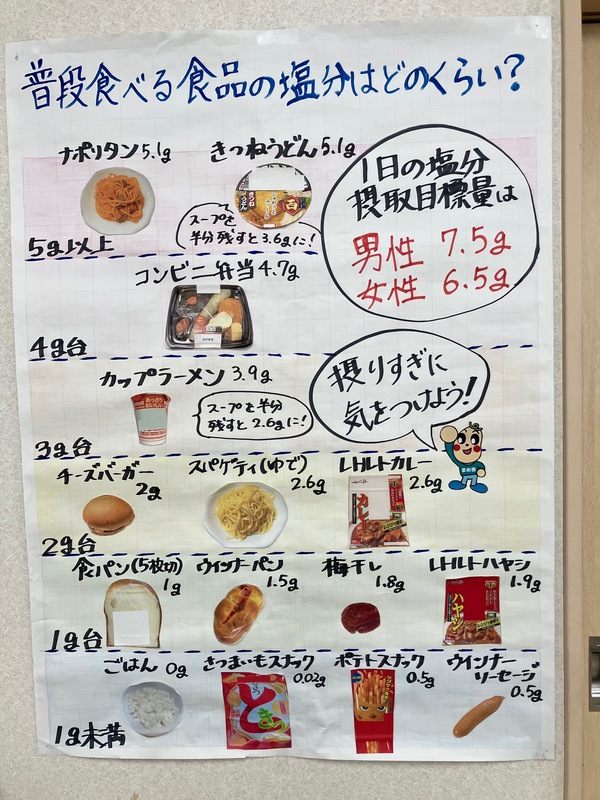 普段食べる食品の塩分はどのくらい?
ナポリタン5.1g
きつねうどん5.1g
スープを
半分残すと3.6gに!
5g以上
1日の塩分
摂取目標量は
男性 7.5g
女性 6.5g
コンビニ弁当4.7g
4g台
カップラーメン3.9g
スープを半分
残すと2.6gに!
3g台
摂りすぎに
気をつけよう!
チーズバーガー
2g
スパゲティ(ゆで)
2.6g
レトルトカレー
2.6g
カレー
2g台
食パン(5枚切)
1g
ウインナーパン
1.5g
梅干し
1.8g
レトルトハヤシ
1.9g
ハヤシ
1g台
ごはん 0g
さつまいもスナック
0.02g
ポテトスナック
0.5g
ウインナー
ソーセージ
0.5g
1g未満